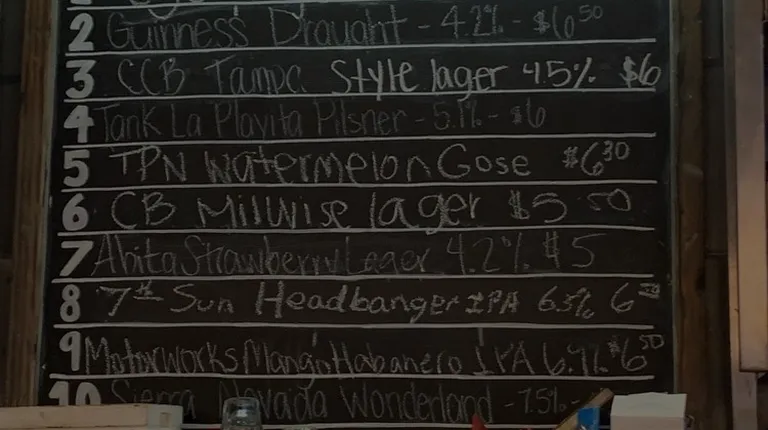 2 Guinness Draught - 4.2% - $6.50
3 CCB Tampa Style lager 4.5% $6
4 Tank La Playita Pilsner - 5.1% - $6
5 TPN Watermelon Gose $6.30
6 CB Milwise lager $5.50
7 Abita Strawberry Lager 4.2% $5
8 7th Sun Headbanger IPA 6.5% 6
9 Motorworks Mango Habanero IPA 6.9% $6.50
10 Sierra Nevada Wonderland - 7.5% -